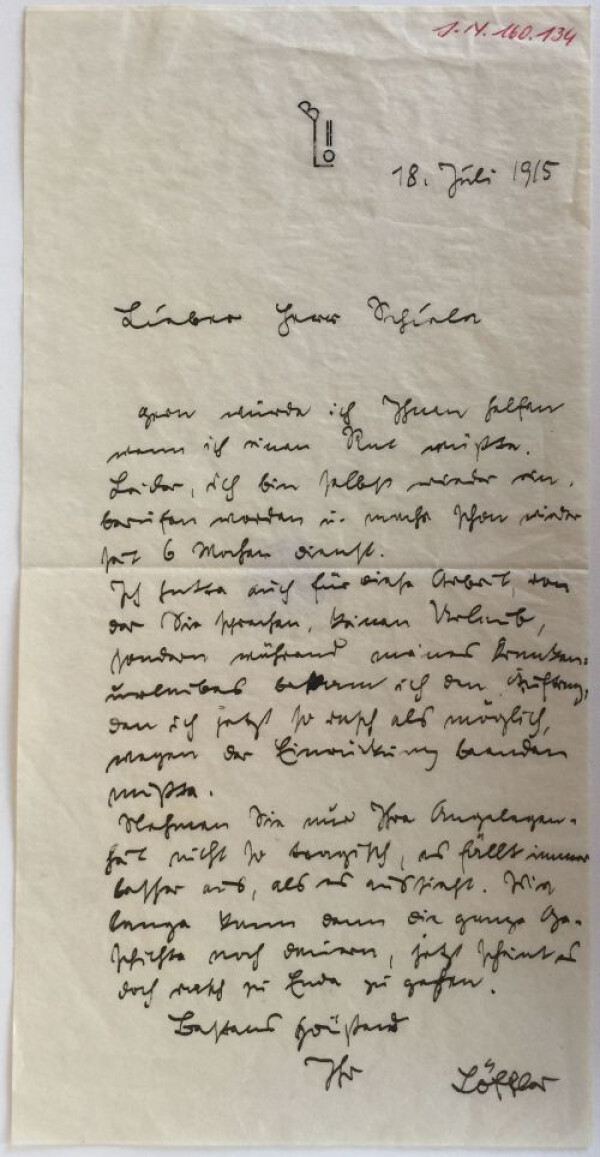 J.N. 160.134
BLÖ
18. Juli 1915
Lieber Herr Schiele
gern würde ich Ihnen helfen
wenn ich einen Rat wüßte.
Leider, ich bin selbst wieder ein-
berufen worden u. mache schon wieder
seit 6 Wochen dienst.
Ich hatte auch für diese Arbeit, von
der Sie sprechen, keinen Urlaub,
sondern während meines Kranken-
urlaubes bekam ich den Auftrag,
den ich jetzt so rasch als möglich,
wegen der Einrückung beenden
mußte.
Nehmen Sie nur Ihre Angelegen-
heit nicht so tragisch, es fällt immer
besser aus, als es aussieht. Wie
lange kann denn die ganze Ge-
schichte noch dauern, jetzt scheint es
doch rasch zu Ende zu gehen.
Bestens grüßend
Ihr Löffler